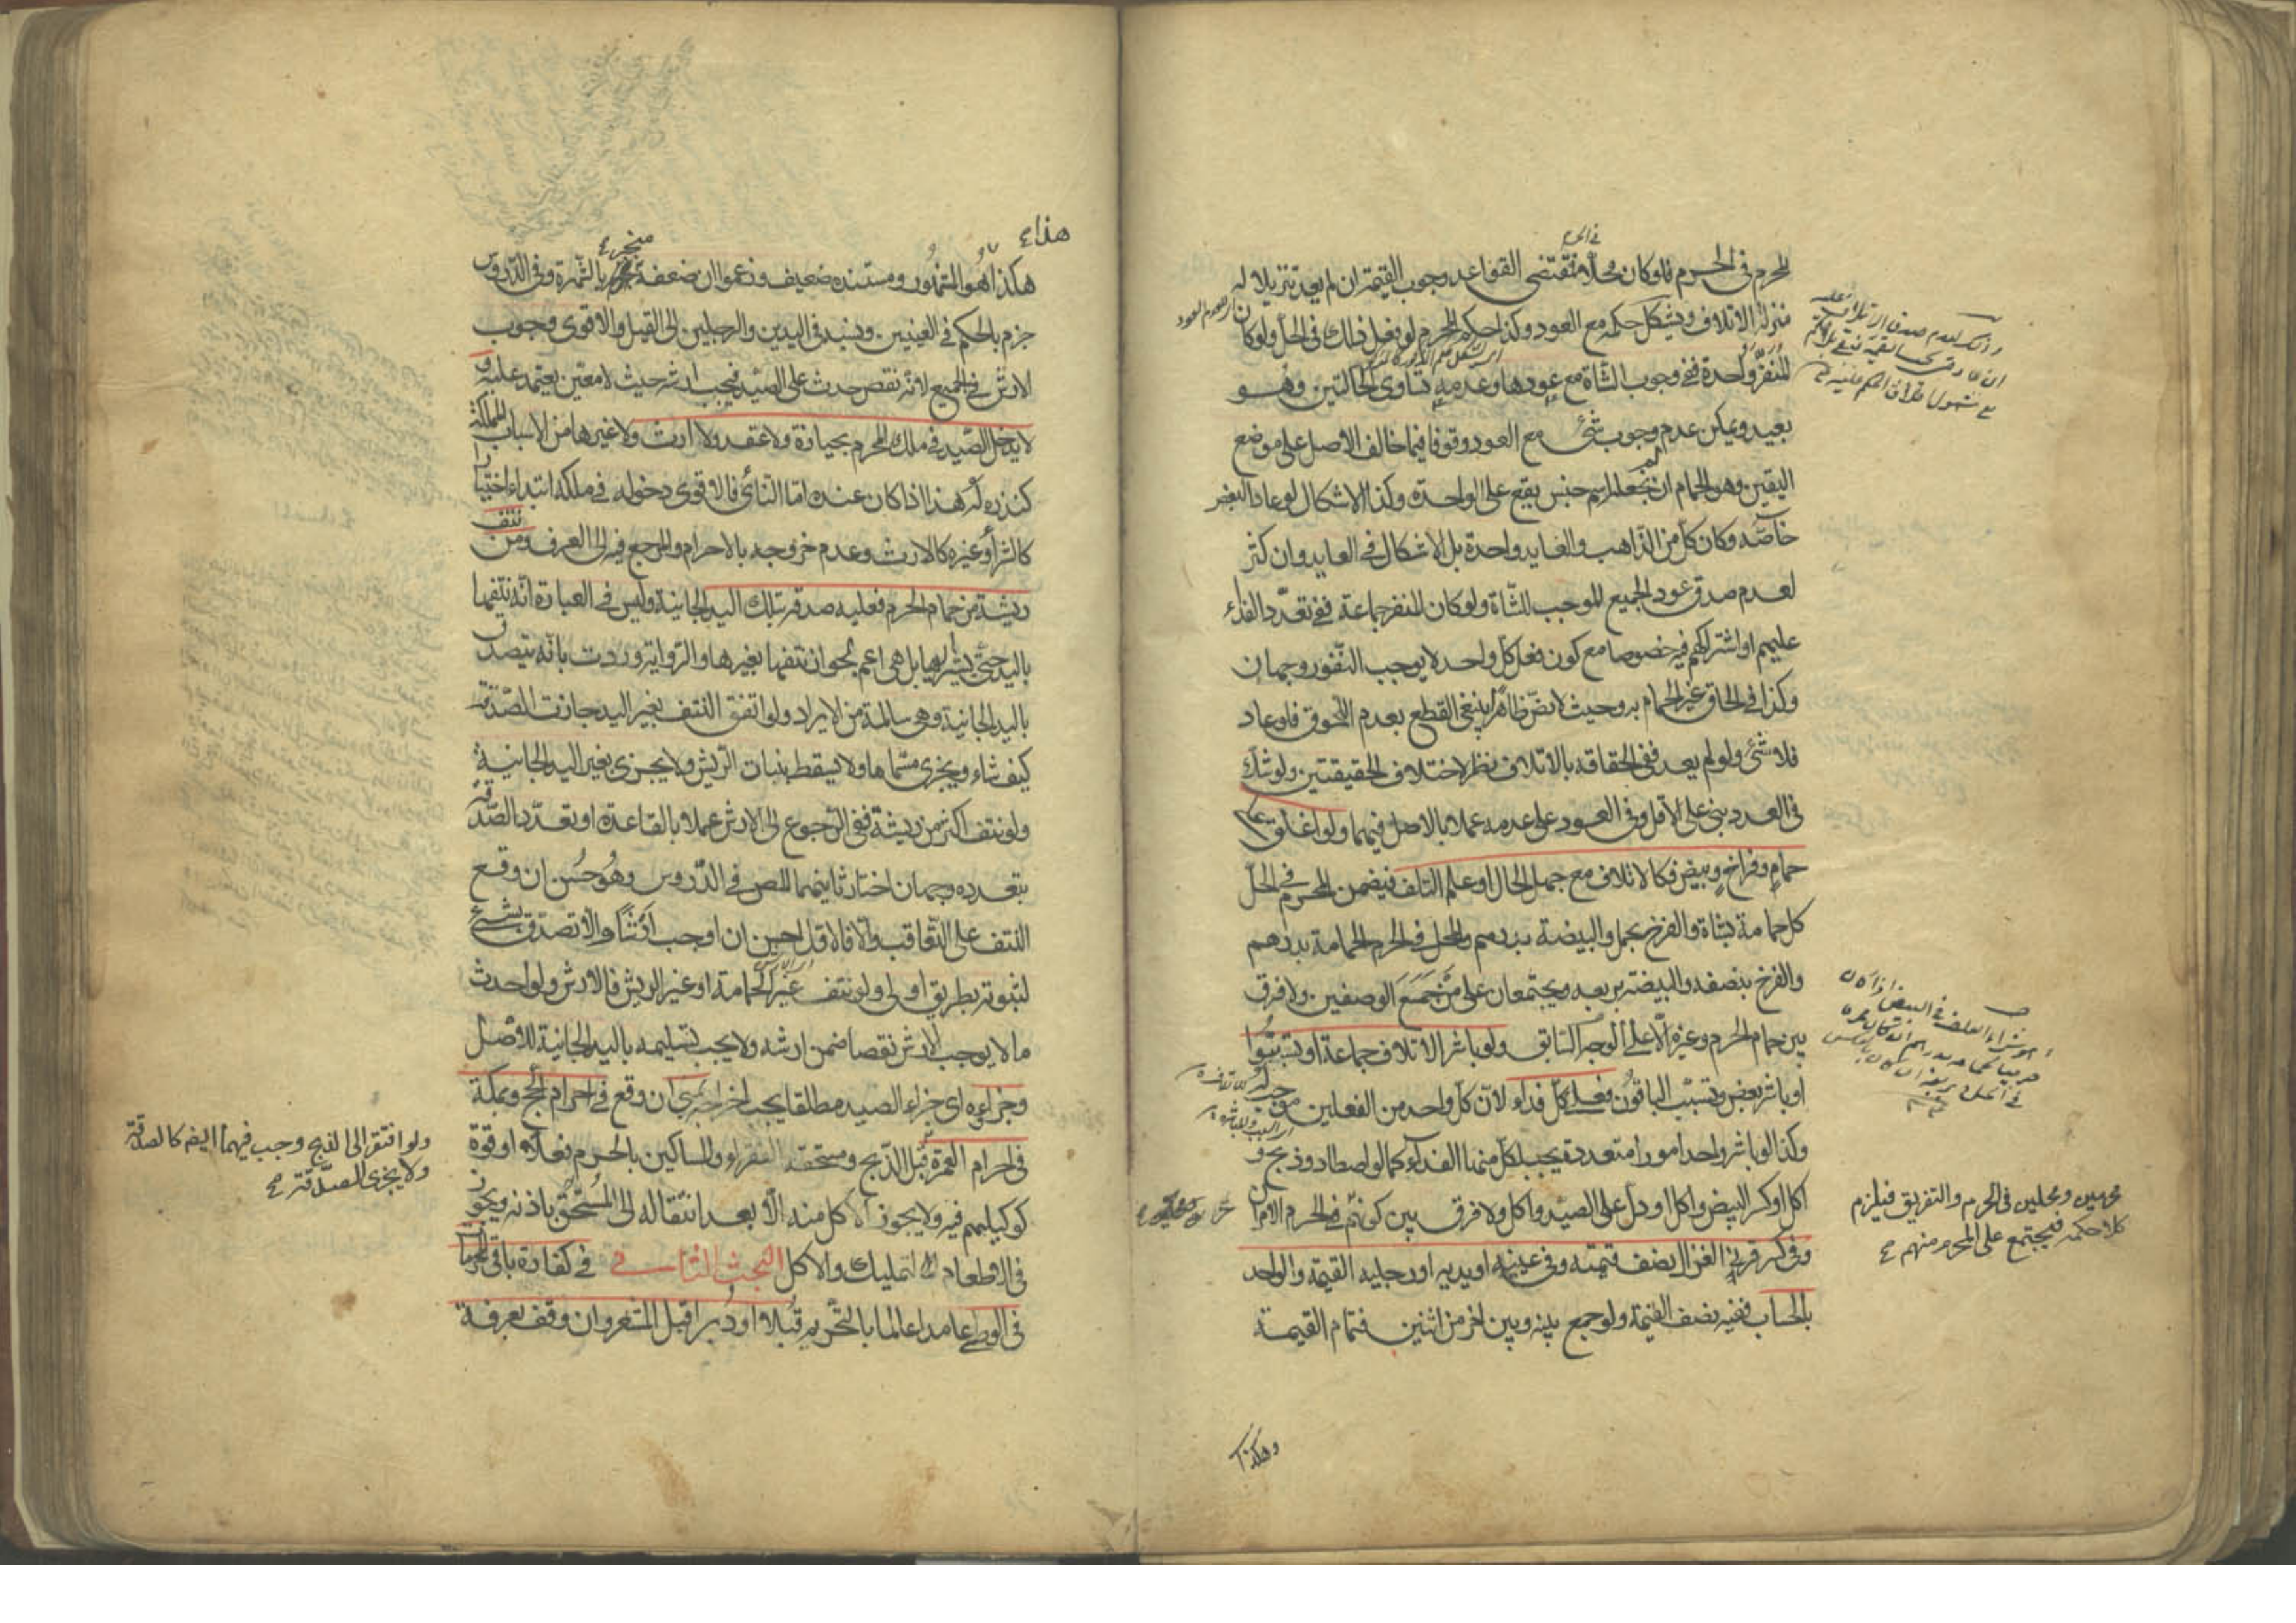 المحرم في الحرم فلو كان محلا فمقتضى القواعد وجوب القيمة ان لم يعد تنزيلا له
في الحرم
منزلة الاتلاف ويشكل حكمه مع العود وكذا حكم المحرم لو فعل ذلك في الحل ولو كان
المنفر واحدة ففي وجوب الشاة مع عودها وعدمه تساوى الحالتين وهو
بعيد ويمكن عدم وجوب شئ مع العود وقوفا فيما خالف الاصل على موضع
اليقين وهو الحمام ان لم نجعله اسم جنس يقع على الواحدة وكذا الاشكال لو عاد البعض
خاصه وكان كل من الذاهب والعايد واحدة بل الاشكال في العايد وان كثر
لعدم صدق عود الجميع الموجب للشاة ولو كان المنفر جماعة ففي تعدد الفداء
عليهم او اشتراكهم فيه خصوصا مع كون فعل كل واحد لا يوجب النفور وجهان
وكذا في الحاق غير الحمام به وحيث لا نص ظاهرا ينبغي القطع بعدم اللحوق فلو عاد
فلا شئ ولو لم يعد ففي الحاقه بالاتلاف نظر لاختلاف الحقيقتين ولو شك
في العدد بنى على الاقل وفي العود على عدمه عملا بالاصل فيهما ولو اغلق على
حمام وفراخ وبيض فكالاتلاف مع جهل الحال او علم التلف فيضمن المحرم في الحل
كل حمامة بشاة والفرخ بحمل والبيضة بدرهم والمحل في الحرم الحمامة بدرهم
والفرخ بنصفه والبيضة بربعه ويجتمعان على من جمع الوصفين ولا فرق
بين حمام الحرم وغيره الا على الوجه السابق ولو باشر الاتلاف جماعة او تسببوا
او باشر بعض وتسبب الباقون فعلى كل فداء لان كل واحد من الفعلين موجب له
وكذا لو باشر واحد امورا متعددة يجب لكل منها الفداء كما لو اصطاد وذبح و
اكل او كسر البيض واكل او دل على الصيد واكل ولا فرق بين كونهم في الحرم
محرمين ومحلين في الحرم والتفريق فيلزم
كلا حكمه فيجتمع على المحرم منهم
وفي كسر قرني الغزال نصف قيمته وفي عينيه او يديه او رجليه القيمة والواحد
بالحساب ففيه نصف القيمة ولو جمع بينه وبين اخر من اثنين فتمام القيمة
وهكذا
هذا
هكذا هو المشهور ومستنده ضعيف وزعموا ان ضعفه منجبر بالشهرة وفي الدروس
جزم بالحكم في العينين ونسبه في اليدين والرجلين الى القيل والاقوى وجوب
الارش في الجميع لانه نقص حدث على الصيد فيجب ارشه حيث لا معين يعتمد عليه و
لا يدخل الصيد في ملك المحرم بحيازة ولا عقد ولا ارث ولا غيرها من الاسباب المملكة
كنذره له هذا اذا كان عنده اما النائى فالاقوى دخوله في ملكه ابتداء اختيارا
كالشراء وغيره كالارث وعدم خروجه بالاحرام والمرجع فيه الى العرف ومن نتف
ريشة من حمام الحرم فعليه صدقة بتلك اليد الجانية وليس في العبارة انه نتفها
باليد حتى يشير اليها بل هي اعم لجواز نتفها بغيرها والرواية وردت بانه يتصدق
باليد الجانية وهي سالمة من الايراد ولو اتفق النتف بغير اليد جازت الصدقة
كيف شاء ويجزى مسماها ولا يسقط بنبات الريش ولا يجزى بغير اليد الجانية
ولو نتف اكثر من ريشة ففي الرجوع الى الارش عملا بالقاعدة او تعدد الصدقة
بتعدده وجهان اختار ثانيهما المص في الدروس وهو حسن ان وقع
النتف على التعاقب والا فالاول احسن ان اوجب ارشا والا تصدق بشئ
لثبوته بطريق اولى ولو نتف غير الحمامة او غير الريش فالارش ولو احدث
ما لا يوجب الارش نقصا ضمن ارشه ولا يجب تسليمه باليد الجانية للاصل
وجزاءوه اى جزاء الصيد مطلقا يجب اخراجه بمنى ان وقع في احرام الحج وبمكة
في احرام العمرة قبل الذبح ومستحقه الفقراء والمساكين بالحرم فعلا او قوة
ولو افتقر الى الذبح وجب فيهما ايضم كالصدقة
ولا يجزى الصدقة
كوكيلهم فيه ولا يجوز الاكل منه الا بعد انتقاله الى المستحق باذنه ويجوز
في الاطعام التمليك والاكل البحث الثانـى في كفارة باقى المحرمات
في الوطى عامدا عالما بالتحريم قبلا او دبرا قبل المشعر وان وقف بعرفة